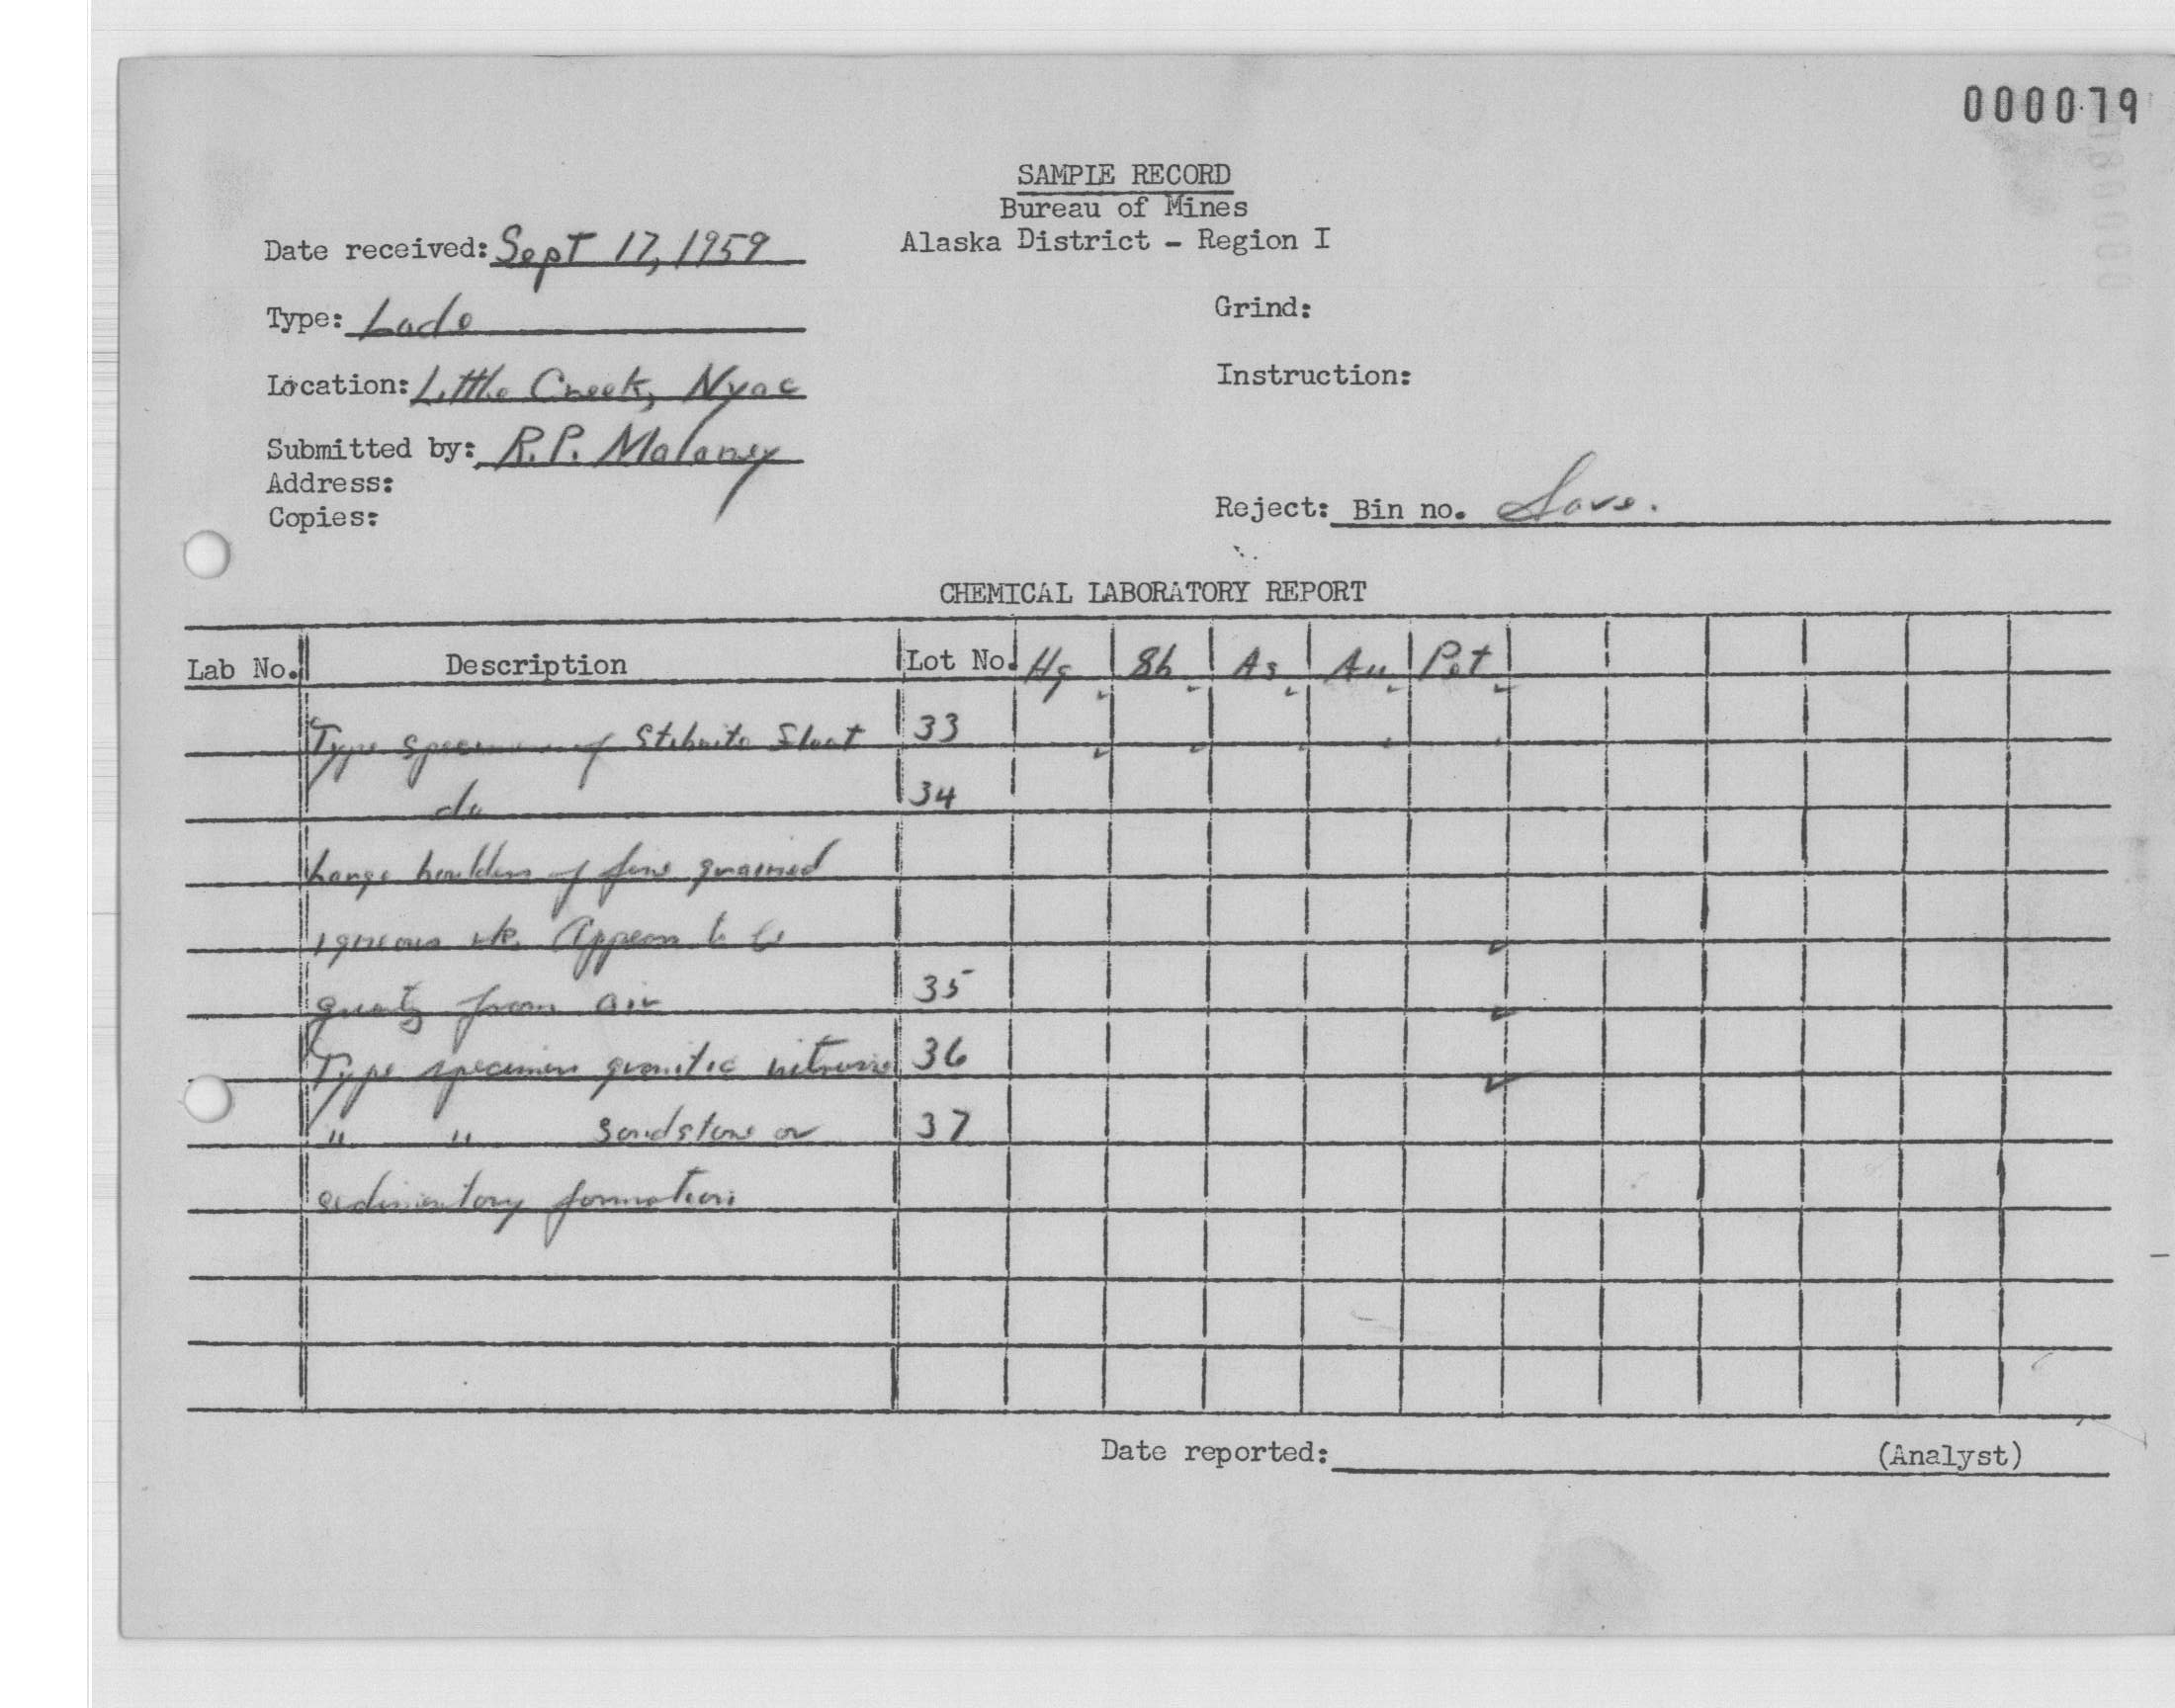 000079
SAMPLE RECORD
Bureau of Mines
Alaska District - Region I
Date received: Sept 17, 1959
Type: Lode
Grind:
Location: Little Creek, Nyac
Instruction:
Submitted by: R.P. Maloney
Address:
Copies:
Reject: Bin no. Save.
CHEMICAL LABORATORY REPORT
Lab No. Description Lot No. Hg Sb As Au Pet
Type specimen of Stibnite float 33
do 34
Large boulders of fine grained
igneous rk. Appears to be
quartz from air 35
Type specimen granitic intrusive 36
" " Sandstone or 37
sedimentary formation
Date reported: (Analyst)